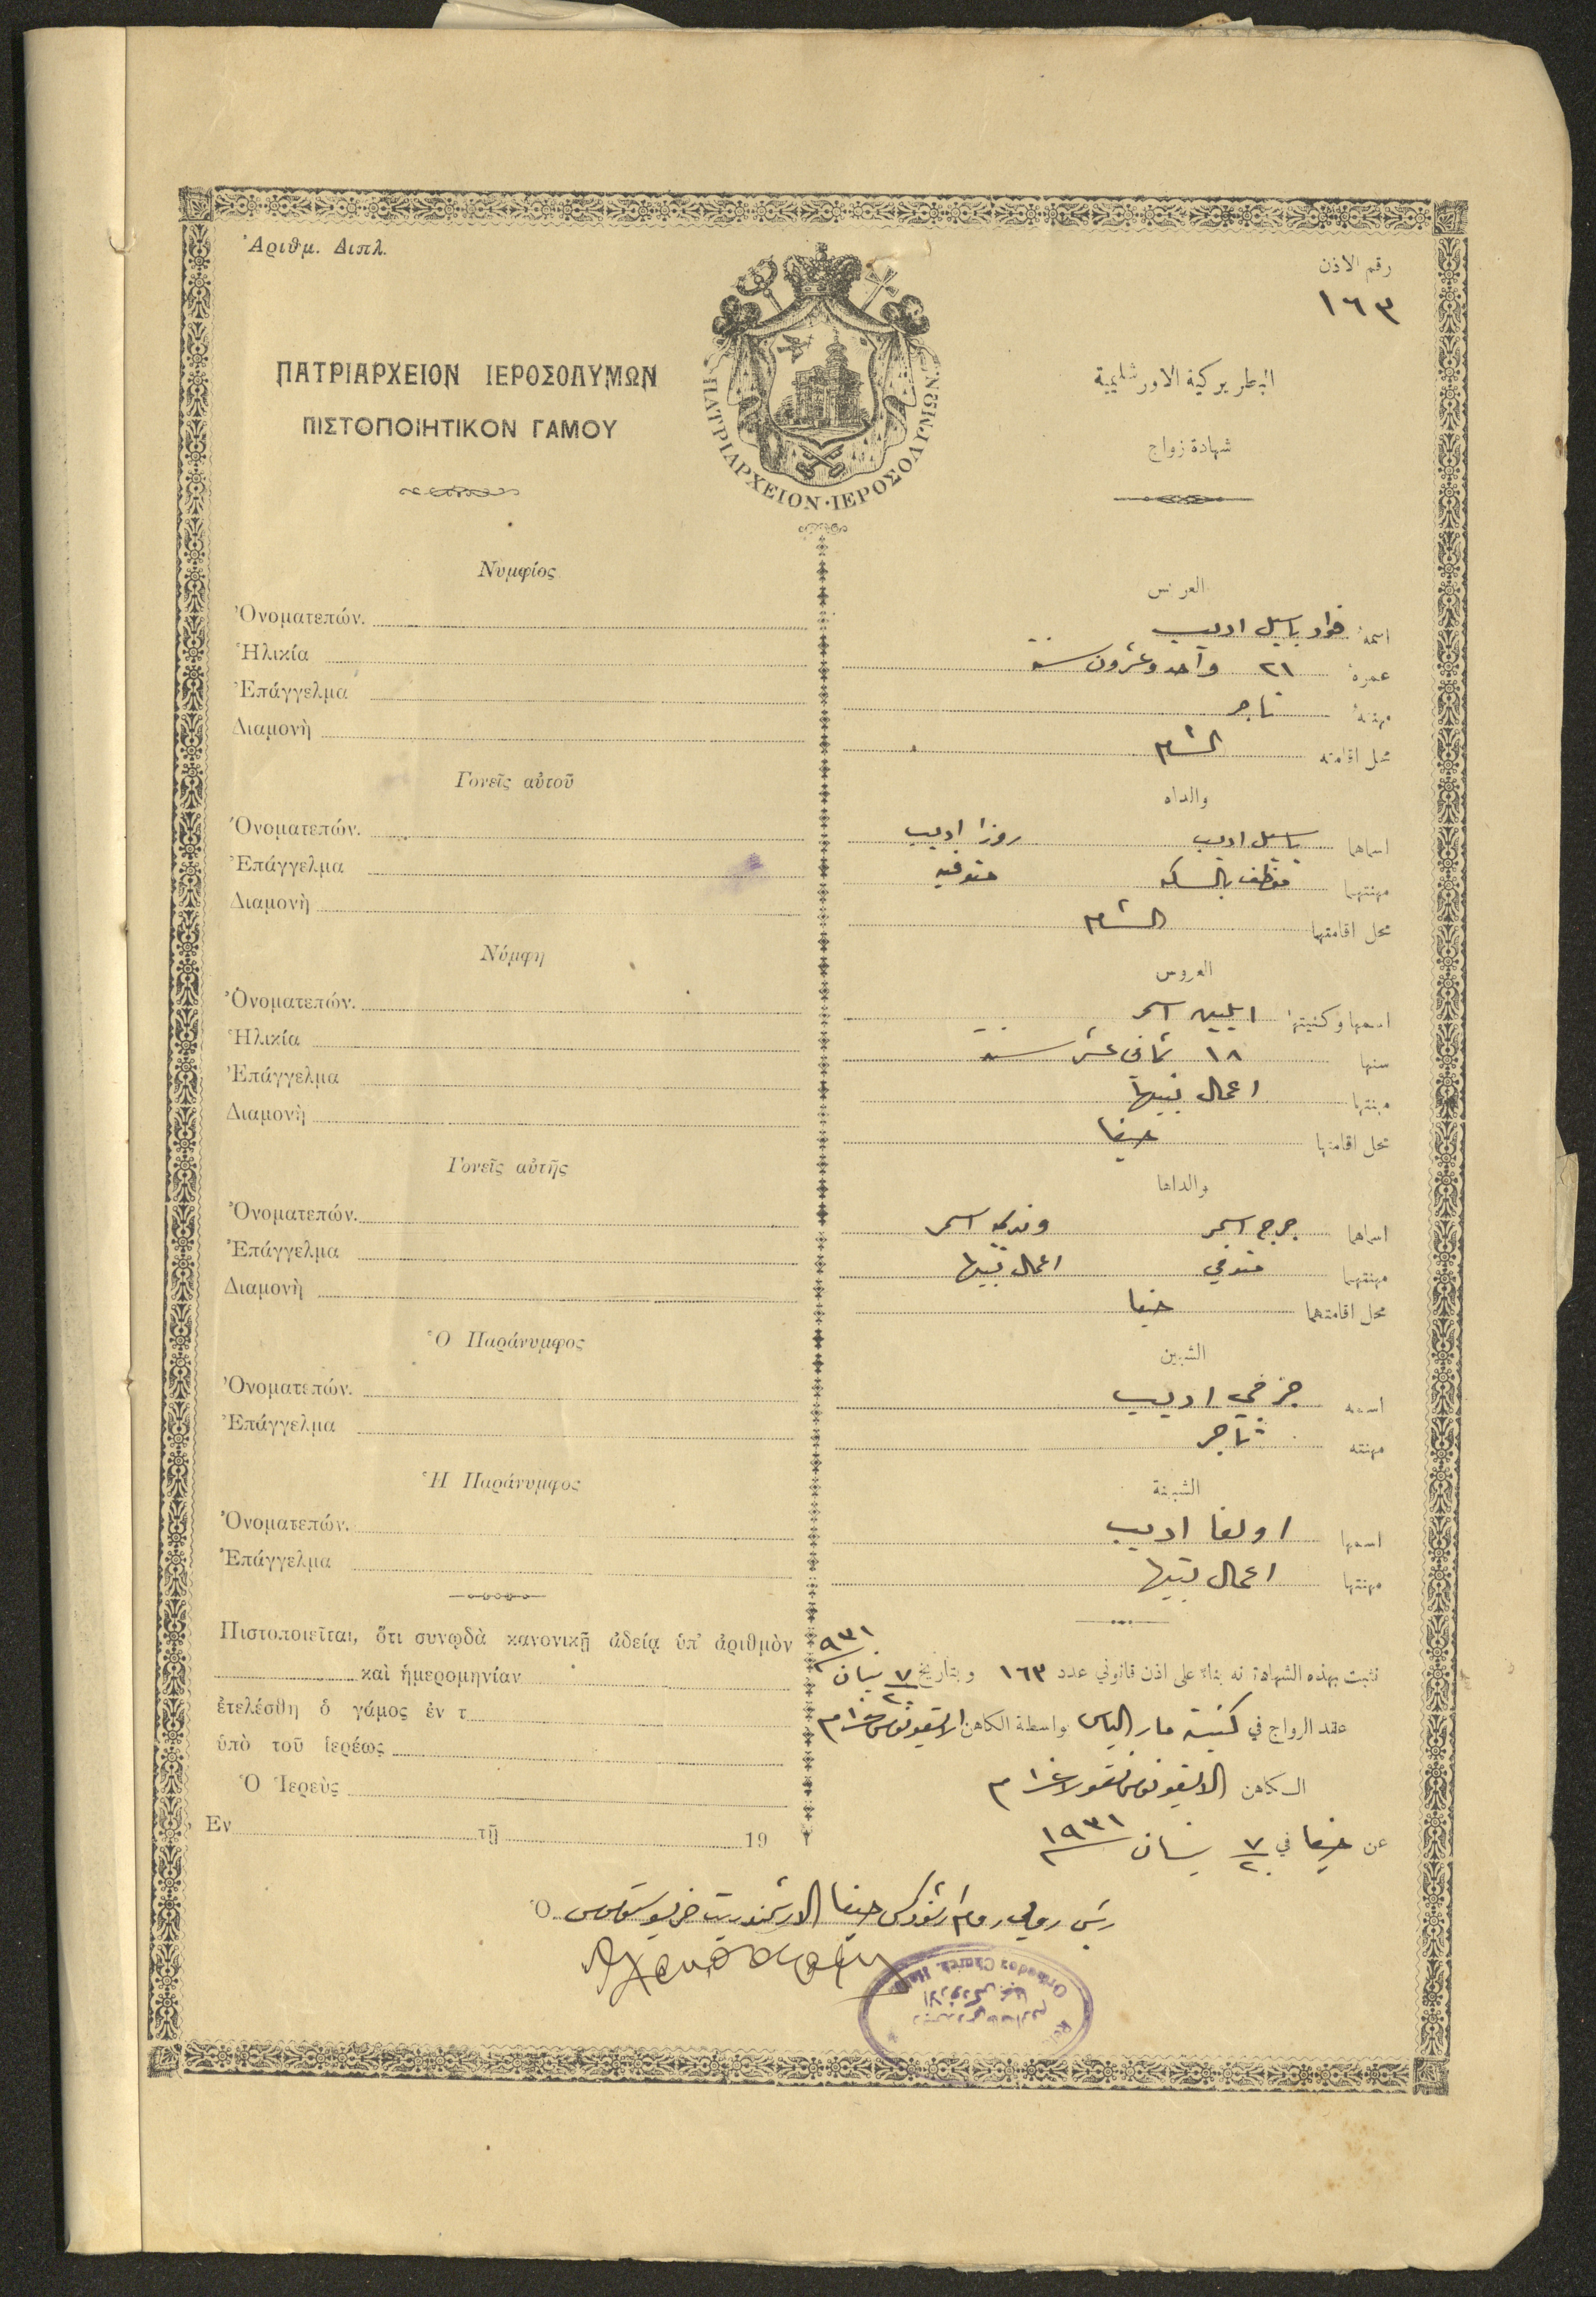 Ἀριθμ. Διπλ.
رقم الاذن
١٦٣
ΠΑΤΡΙΑΡΧΕΙΟΝ ΙΕΡΟΣΟΛΥΜΩΝ
ΠΙΣΤΟΠΟΙΗΤΙΚΟΝ ΓΑΜΟΥ
ΠΑΤΡΙΑΡΧΕΙΟΝ·ΙΕΡΟΣΟΛΥΜΩΝ.
البطريركية الاورشليمية
شهادة زواج
Νυμφίος
Ὀνοματεπών.
Ἡλικία
Ἐπάγγελμα
Διαμονὴ
Γονεῖς αὐτοῦ
Ὀνοματεπών.
Ἐπάγγελμα
Διαμονὴ
Νύμφη
Ὀνοματεπών.
Ἡλικία
Ἐπάγγελμα
Διαμονὴ
Γονεῖς αὐτῆς
Ὀνοματεπών.
Ἐπάγγελμα
Διαμονὴ
Ὁ Παράνυμφος
Ὀνοματεπών.
Ἐπάγγελμα
Ἡ Παράνυμφος
Ὀνοματεπών.
Ἐπάγγελμα
Πιστοποιεῖται, ὅτι συνῳδὰ κανονικῇ ἀδείᾳ ὑπ' ἀριθμὸν
καὶ ἡμερομηνίαν
ἐτελέσθη ὁ γάμος ἐν τ
ὑπὸ τοῦ ἱερέως
Ὁ Ἱερεὺς
Ἐν τῇ 19
العريس
اسمهُ فؤاد باسيل اديب
عمرهُ ٢١ واحد وعشرون سنة
مهنتهُ تاجر
محل اقامته الشام
والداه
اسماهما باسيل اديب روزا اديب
مهنتهما موظف بالسكه متوفيه
محل اقامتهما الشام
العروس
اسمها وكنيتها ايلين اسمر
سنها ١٨ ثماني عشر سنة
مهنتها اعمال بيتها
محل اقامتها حيفا
والداها
اسماهما جرجي اسمر اسمر
مهنتهما متوفي اعمال بيتها
محل اقامتهما حيفا
الشبين
اسمه اديب
مهنته تاجر
الشبينة
اسمها اولغا اديب
مهنتها اعمال بيتها
نثبت بهذه الشهادة انه بناءً على اذن قانوني عدد ١٦٣ وبتاريخ ٧/٢٠ نيسان ٩٣١
عقد الزواج في كنيسة مار الياس بواسطة الكاهن
الكاهن
عن حيفا في ٧/٢٠ نيسان ١٩٣١
Ὁ رئيس روحي روم ارثوذكس حيفا الارشمندريت
Orthodox Church, Haifa